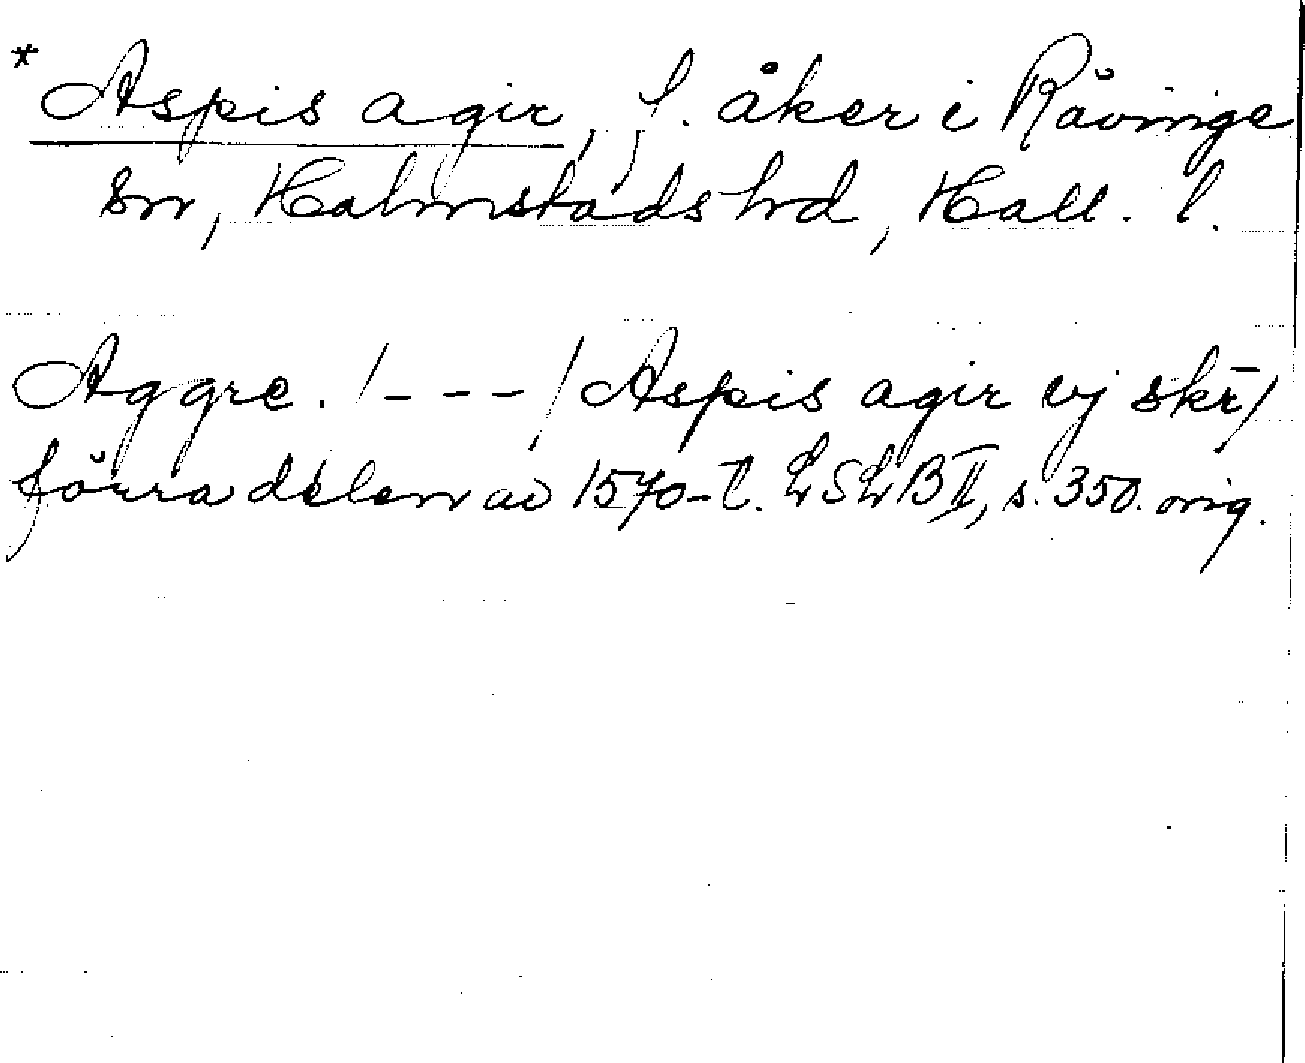 * Aspis agir, f. åker i Råvinge
sn, Halmstads hrd, Hall. l.
Aggre. /---/ Aspis agir ej skr/
förra delen av 1570-t. LSLB II, s. 350. orig.